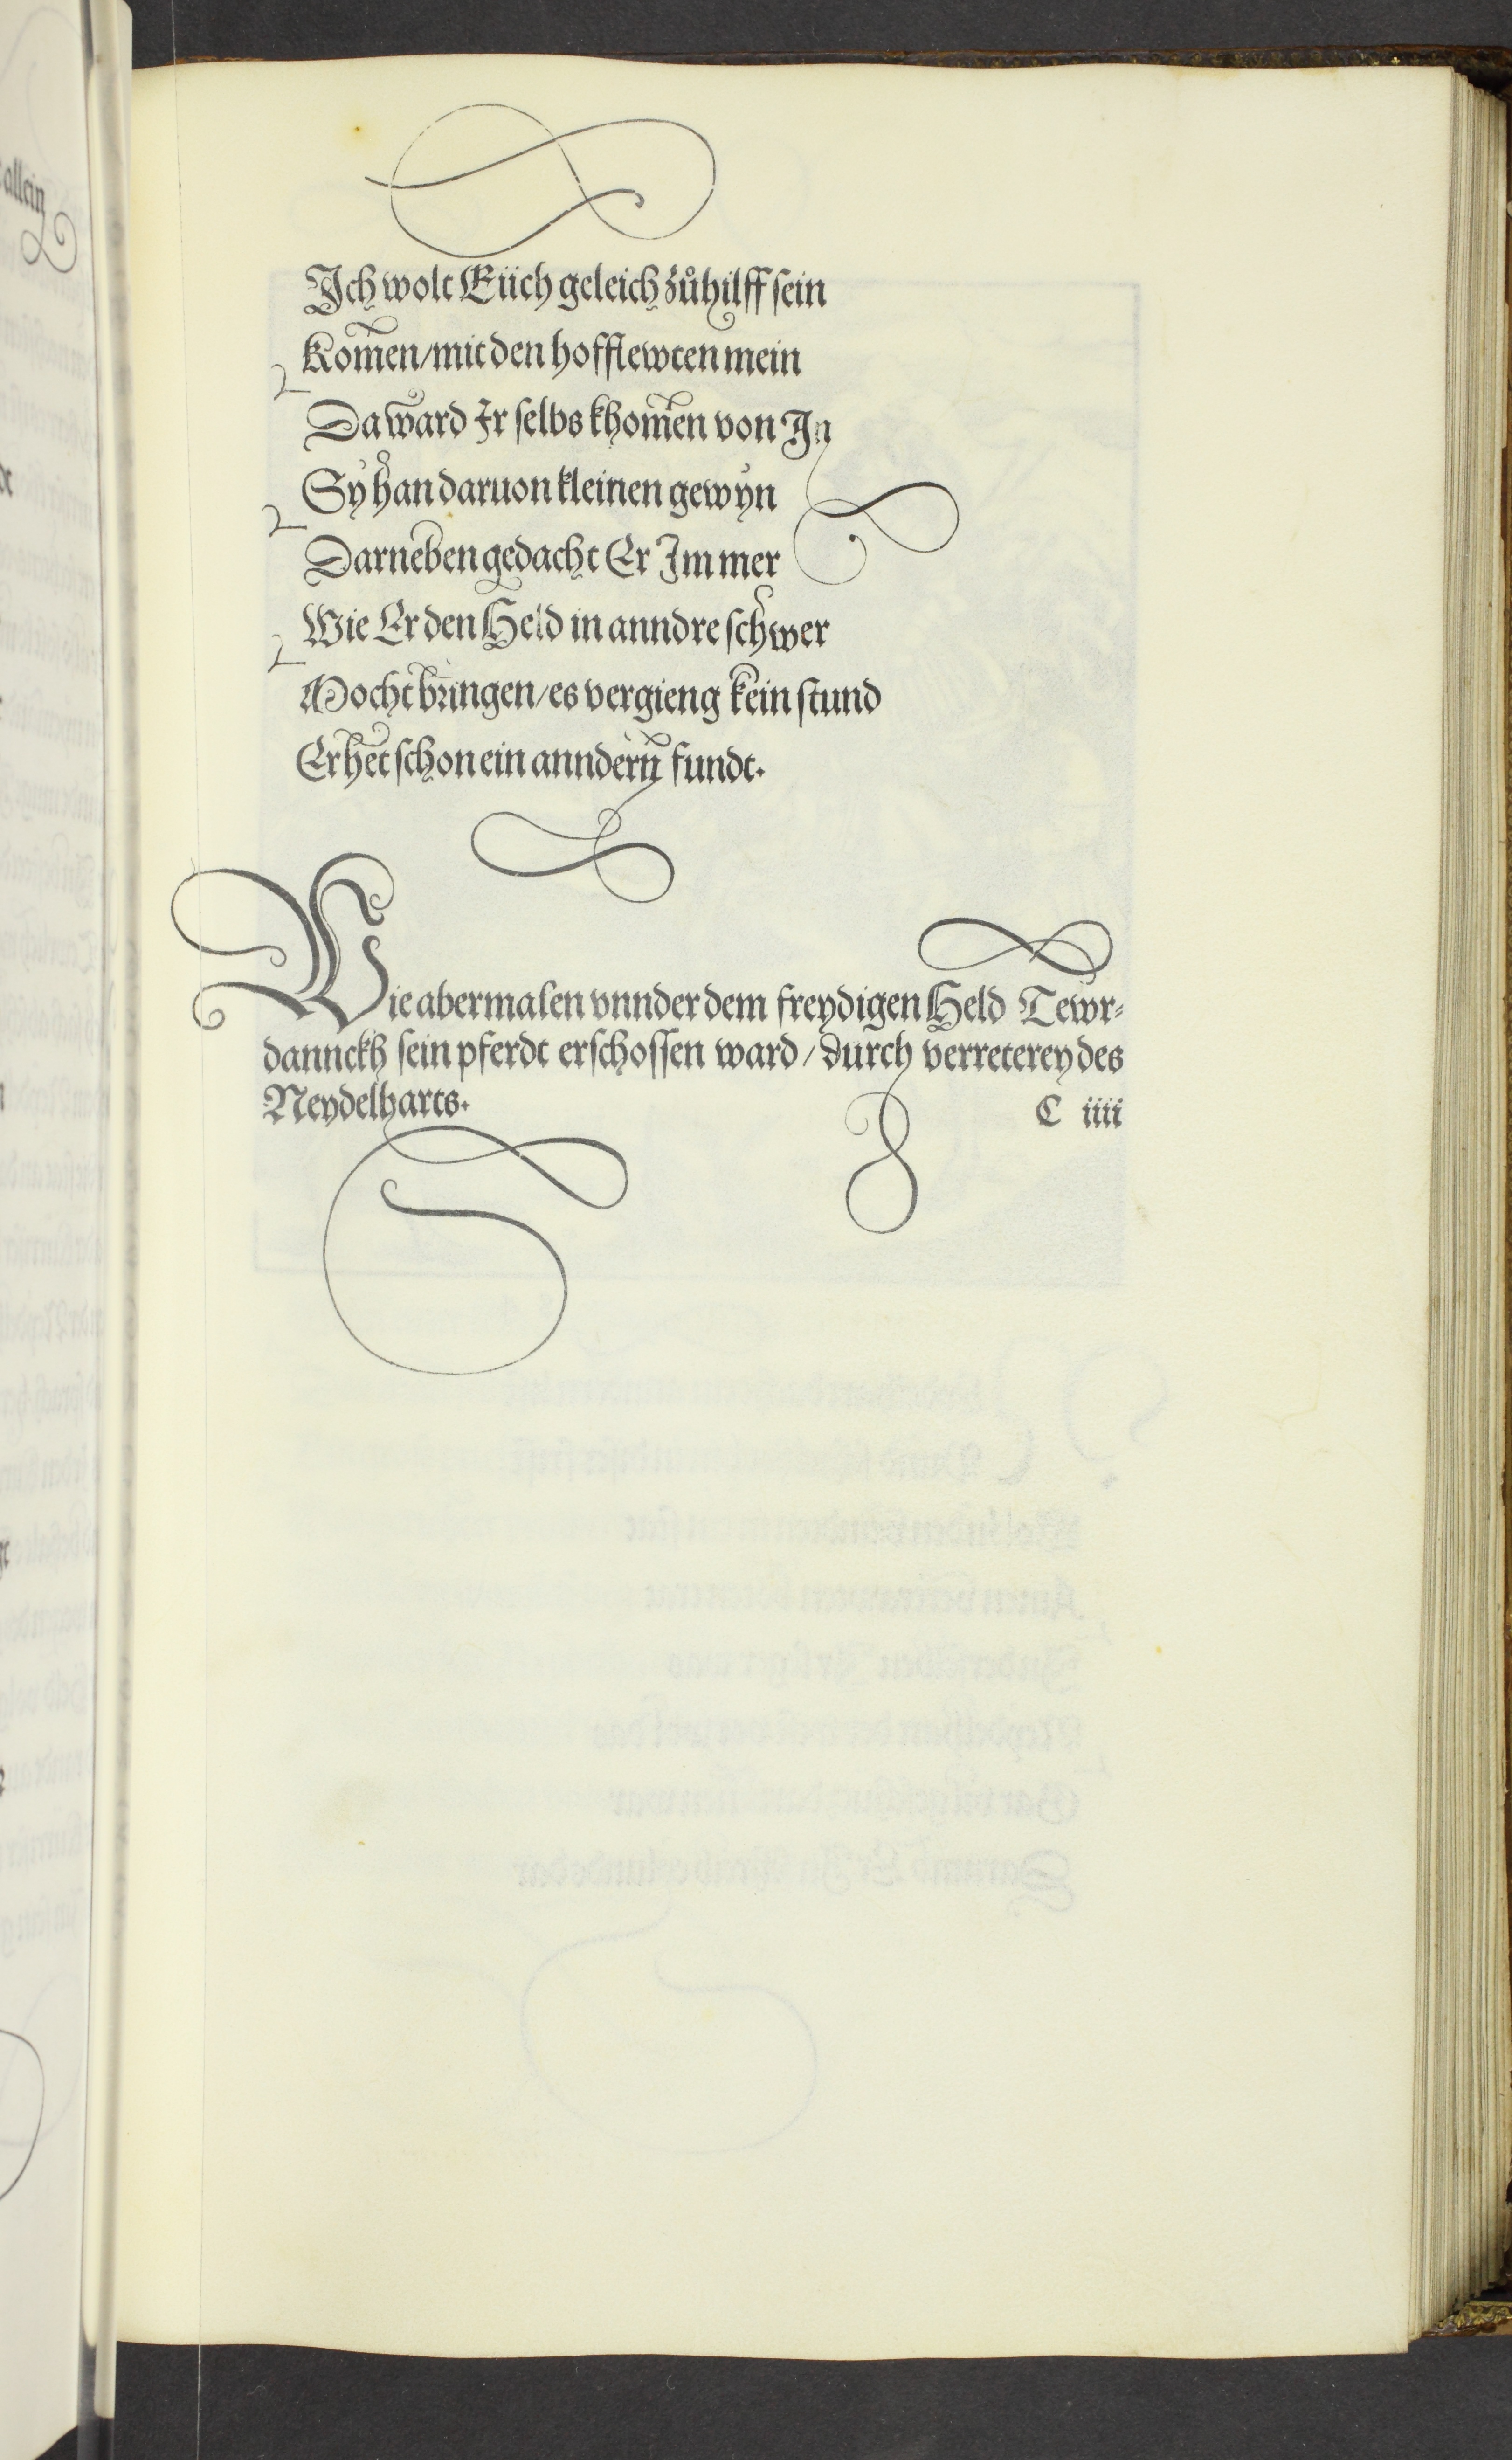 Ich wolt Eüch geleich zůhilff sein
Komen/mit den hofflewten mein
Da ward Ir selbs khomen von In
Sÿ han daruon kleinen gewyn
Darneben gedacht Er Im mer
Wie Er den Held in anndre schwer
Mocht bringen/es vergieng kein stund
Er het schon ein anndern fundt.
Wie abermalen vnnder dem freydigen Held Tewr⸗
dannckh sein pferdt erschossen ward/durch verreterey des
Neydelharts. C iiii
allein